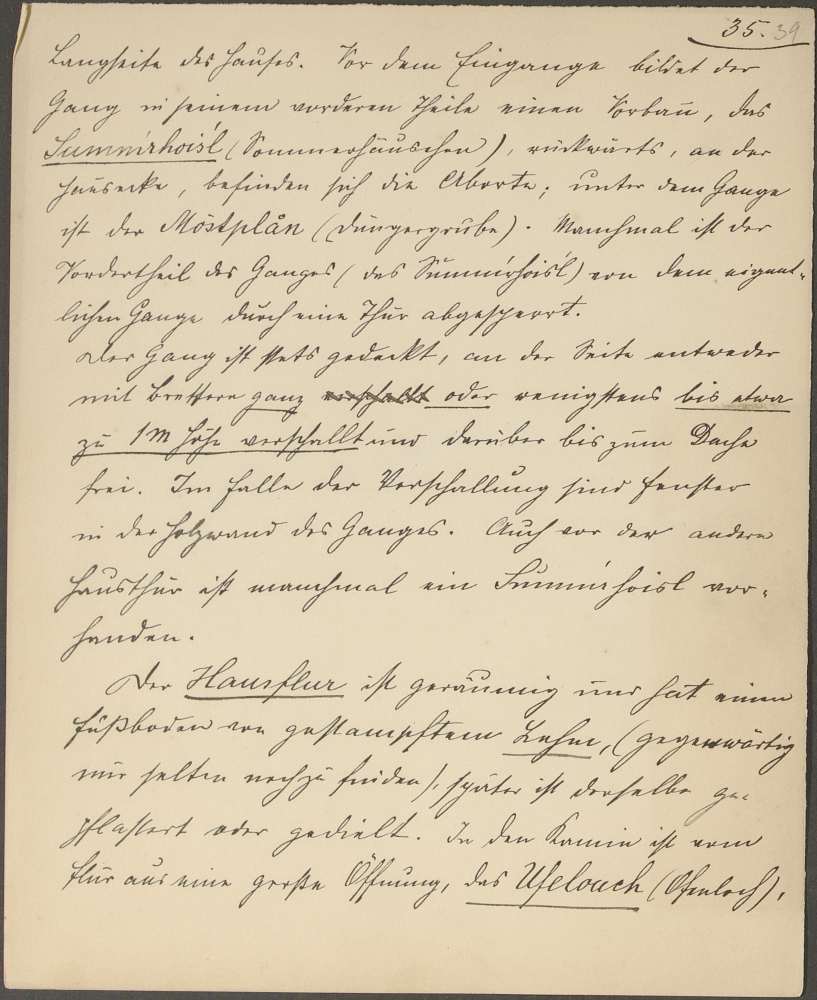 35. 39
Langseite des Hauses. Vor dem Eingange bildet der
Gang in seinem vorderen Theile einen Vorbau, das
Summ'rhois'l (Sommerhäuschen), rückwärts, an der
Hausecke, befinden sich die Aborte; unter dem Gange
ist der Möstplån (Düngergrube). Manchmal ist der
Vordertheil des Ganges (das Summ'rhois'l) von dem eigent-
lichen Gange durch eine Thür abgesperrt.
Der Gang ist stets gedeckt, an der Seite entweder
mit Brettern ganz verschallt oder wenigstens bis etwa
zu 1 m Höhe verschallt und darüber bis zum Dache
frei. Im Falle der Verschallung sind Fenster
in der Holzwand des Ganges. Auch vor der andern
Hausthür ist manchmal ein Summ'rhoisl vor-
handen.
Der Hausflur ist geräumig und hat einen
Fußboden von gestampftem Lehm, (gegenwärtig
nur selten noch zu finden), später ist derselbe ge-
pflastert oder gedielt. In den Kamin ist vom
Flur aus eine große Öffnung, das Ufelouch (Ofenloch),